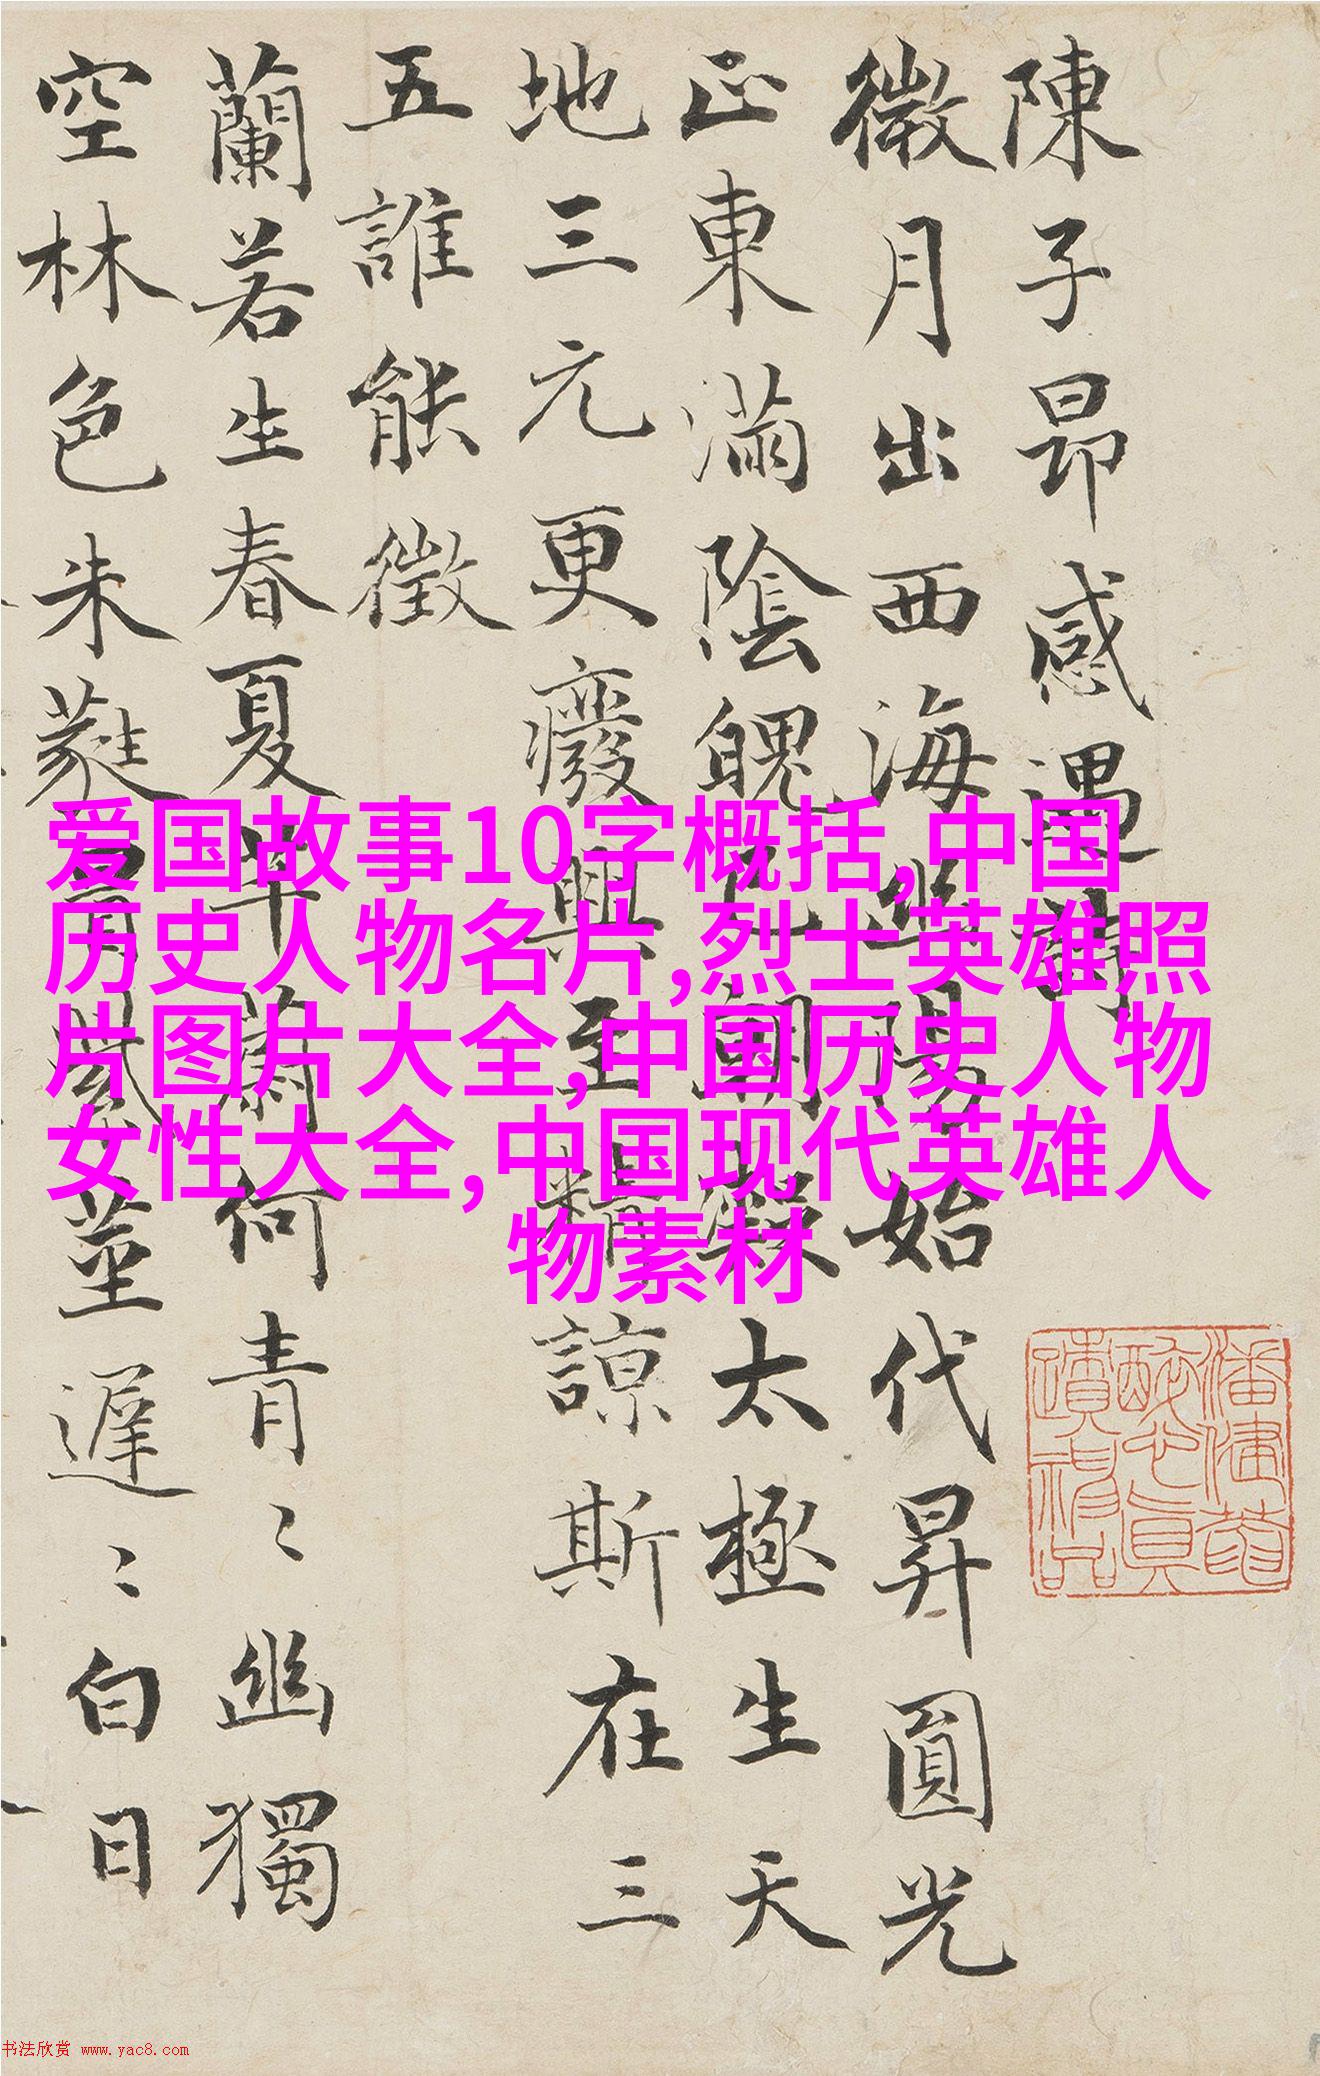 陳子昂感遇詩
微月出西海幽陽始代昇圓光
正東滿陰魄已朝凝太極生天
地三元更癈興至精諒斯在三
五誰能徵
蘭若生春夏芊蔚何青〻幽獨
空林色朱蕤冒紫莖遲〻白日
爱国故事10字概括,中国
历史人物名片,烈士英雄照
片图片大全,中国历史人物
女性大全,中国现代英雄人
物素材
书法欣赏 www.yac8.com